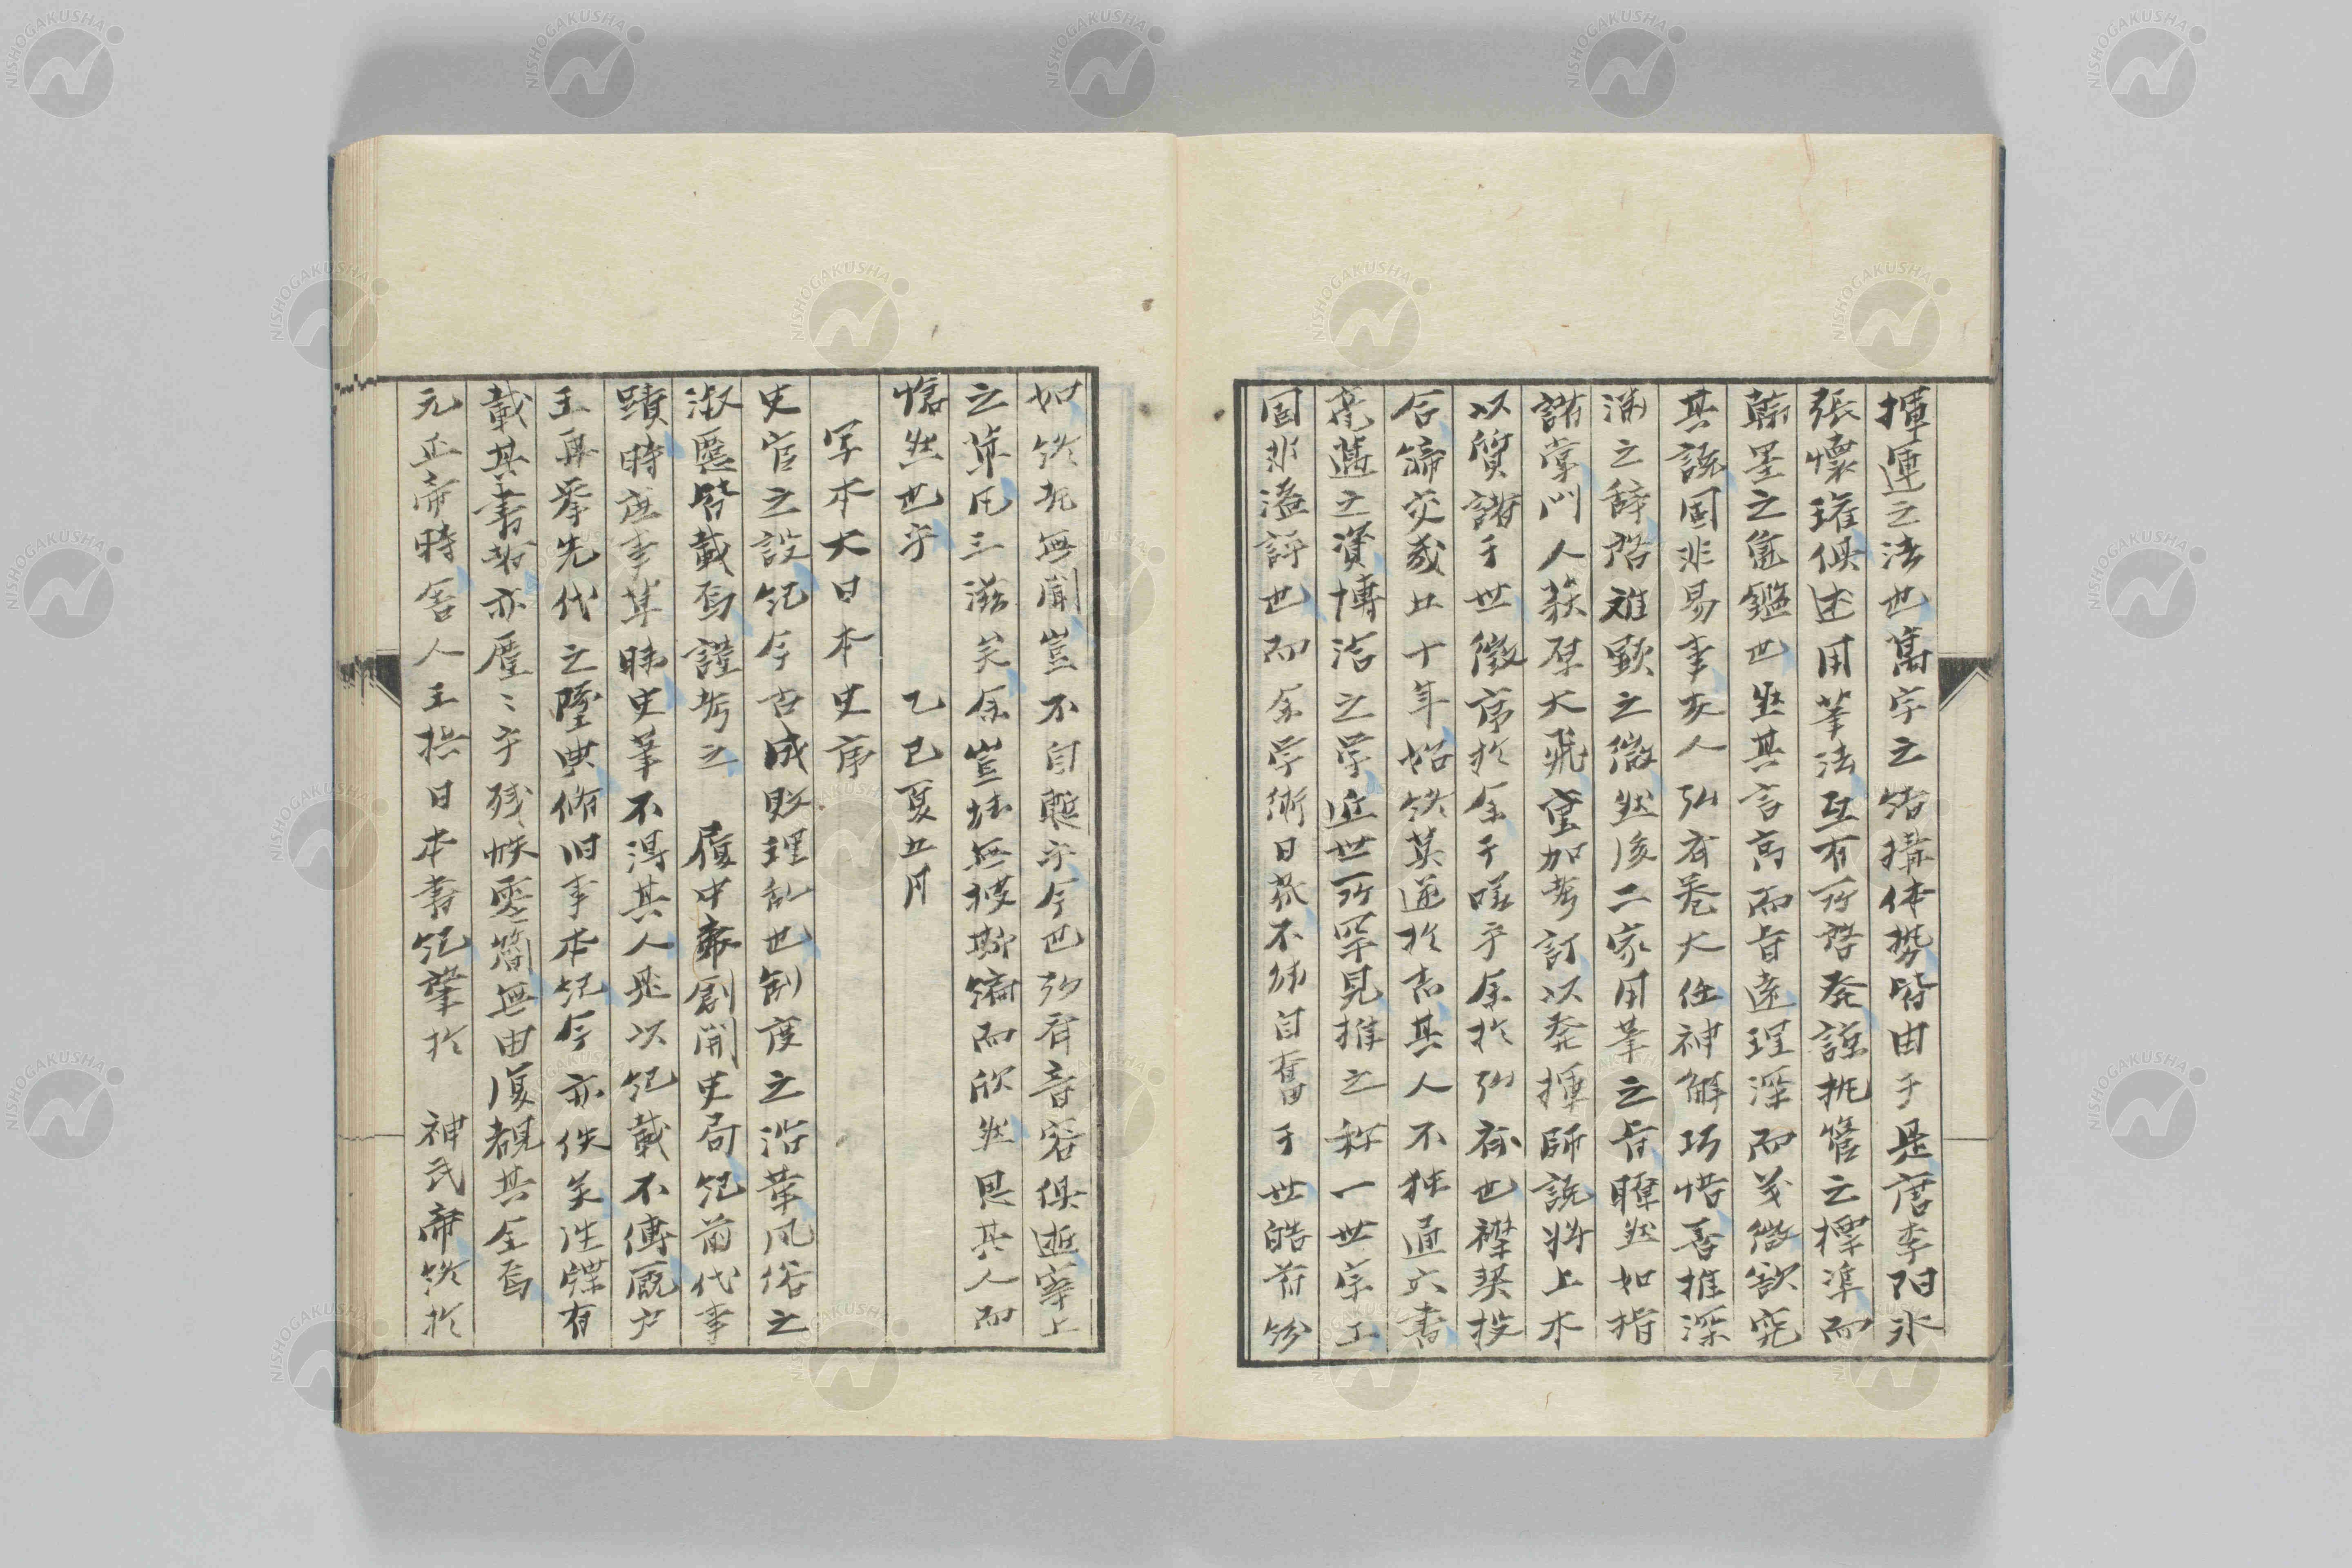 揮運之法也篇字之結構体勢皆由于是唐李陽冰
張懷瓘倶述用筆法互有所啓発諒把管之標準而
翰墨之亀鑑也然其言高而旨遠理深而義微欲究
其説固非易事友人弘斎巻大任神解巧悟善推深
淵之辞啓難顕之微然後二家用筆之旨瞭然如指
諸掌門人荻原大飛重加考訂以発揮師説将上木
以質諸于世徴序於余于嗟乎余於弘斎也襟契投
合締交茲廿十年始終莫逆於其人不独通六書
邁之資博洽之学近世所罕見推之称一世宗工
固非溢評也而余学術日荒不能自奮于世皓首紛
如終死無聞豈不自慙乎今也弘斎音容倶逝宰上
之草凡三滋矣余豈故無披斯編而欣然思其人而
愴然也乎 乙巳夏五月
写本大日本史序
史官之設紀今古成敗理乱也制度之沿革風俗之
淑慝皆載焉謹考之 履中帝創開史局紀前代事
蹟時底事草昧史筆不得其人是以紀載不傳厩戸
王再挙先代之墜典脩旧事本紀今亦佚矣洪牒有
載其書者亦歴〻乎残帙零簡無由復覩其全焉
元正帝時舎人王撰日本書紀肇於 神武帝終於